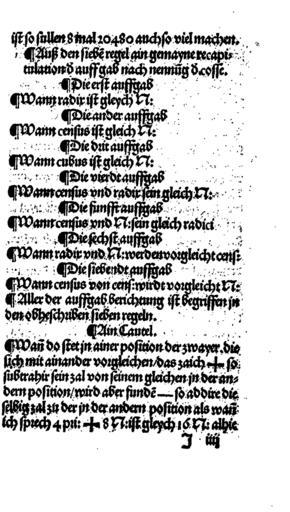 ist so sullen 8 mal 20480 auch so viel machen.
¶Auß den siebē regel ain gemayne recapi⸗
tulation d̄ auffgab nach nennūg d̄ cosse.
¶Die erst auffgab
¶Wann radix ist gleych N:
¶Die ander auffgab
¶Wann census ist gleich N:
¶Die drit auffgab
¶Wann cubus ist gleich N:
¶Die vierdt auffgab
¶Wann census vnd radix sein gleich N:
¶Die funfft auffgab
¶Wann census vnd N: sein gleich radici
¶Die sechst auffgab
¶Wann radix vnd N: werden vorgleicht censi
¶Die siebendt auffgab
¶Wann census von cens: wirdt vorgleicht N:
¶Aller der auffgab berichtung ist begriffen in
den obgeschriben sieben regeln.
¶Ain Cautel.
¶Wañ do stet in ainer position der zwayer, die
sich mit ainander vorgleichen/das zaich + so
subtrahir sein zal von seinem gleichen in der an⸗
dern position/wird aber fundē — so addire die
selbig zal zu der in der andern position als wañ
ich sprech 4 pri: + 8 N: ist gleych 16 N: alhie
J iiij